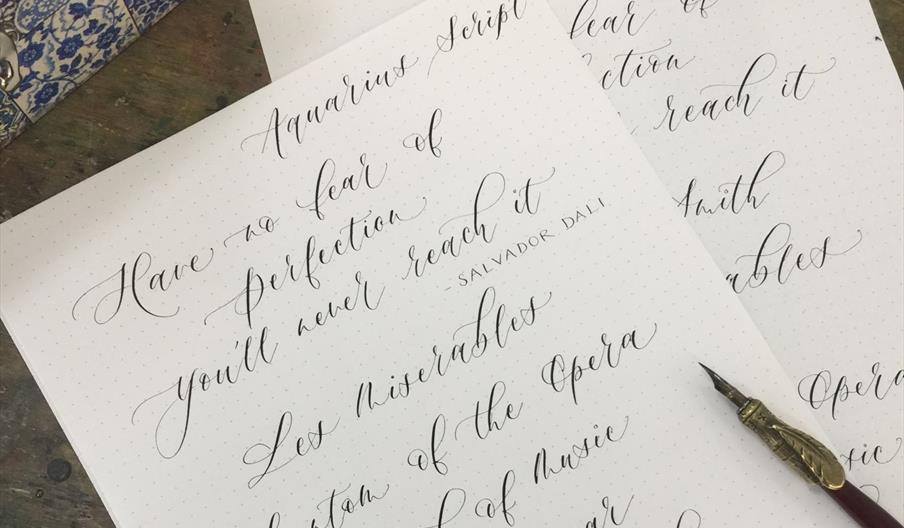 Aquarius Script
Have no fear of
perfection
you'll never reach it
-SALVADOR DALI
Les Miserables
of the Opera
of Music
fear of
reach it
Smith
Opera